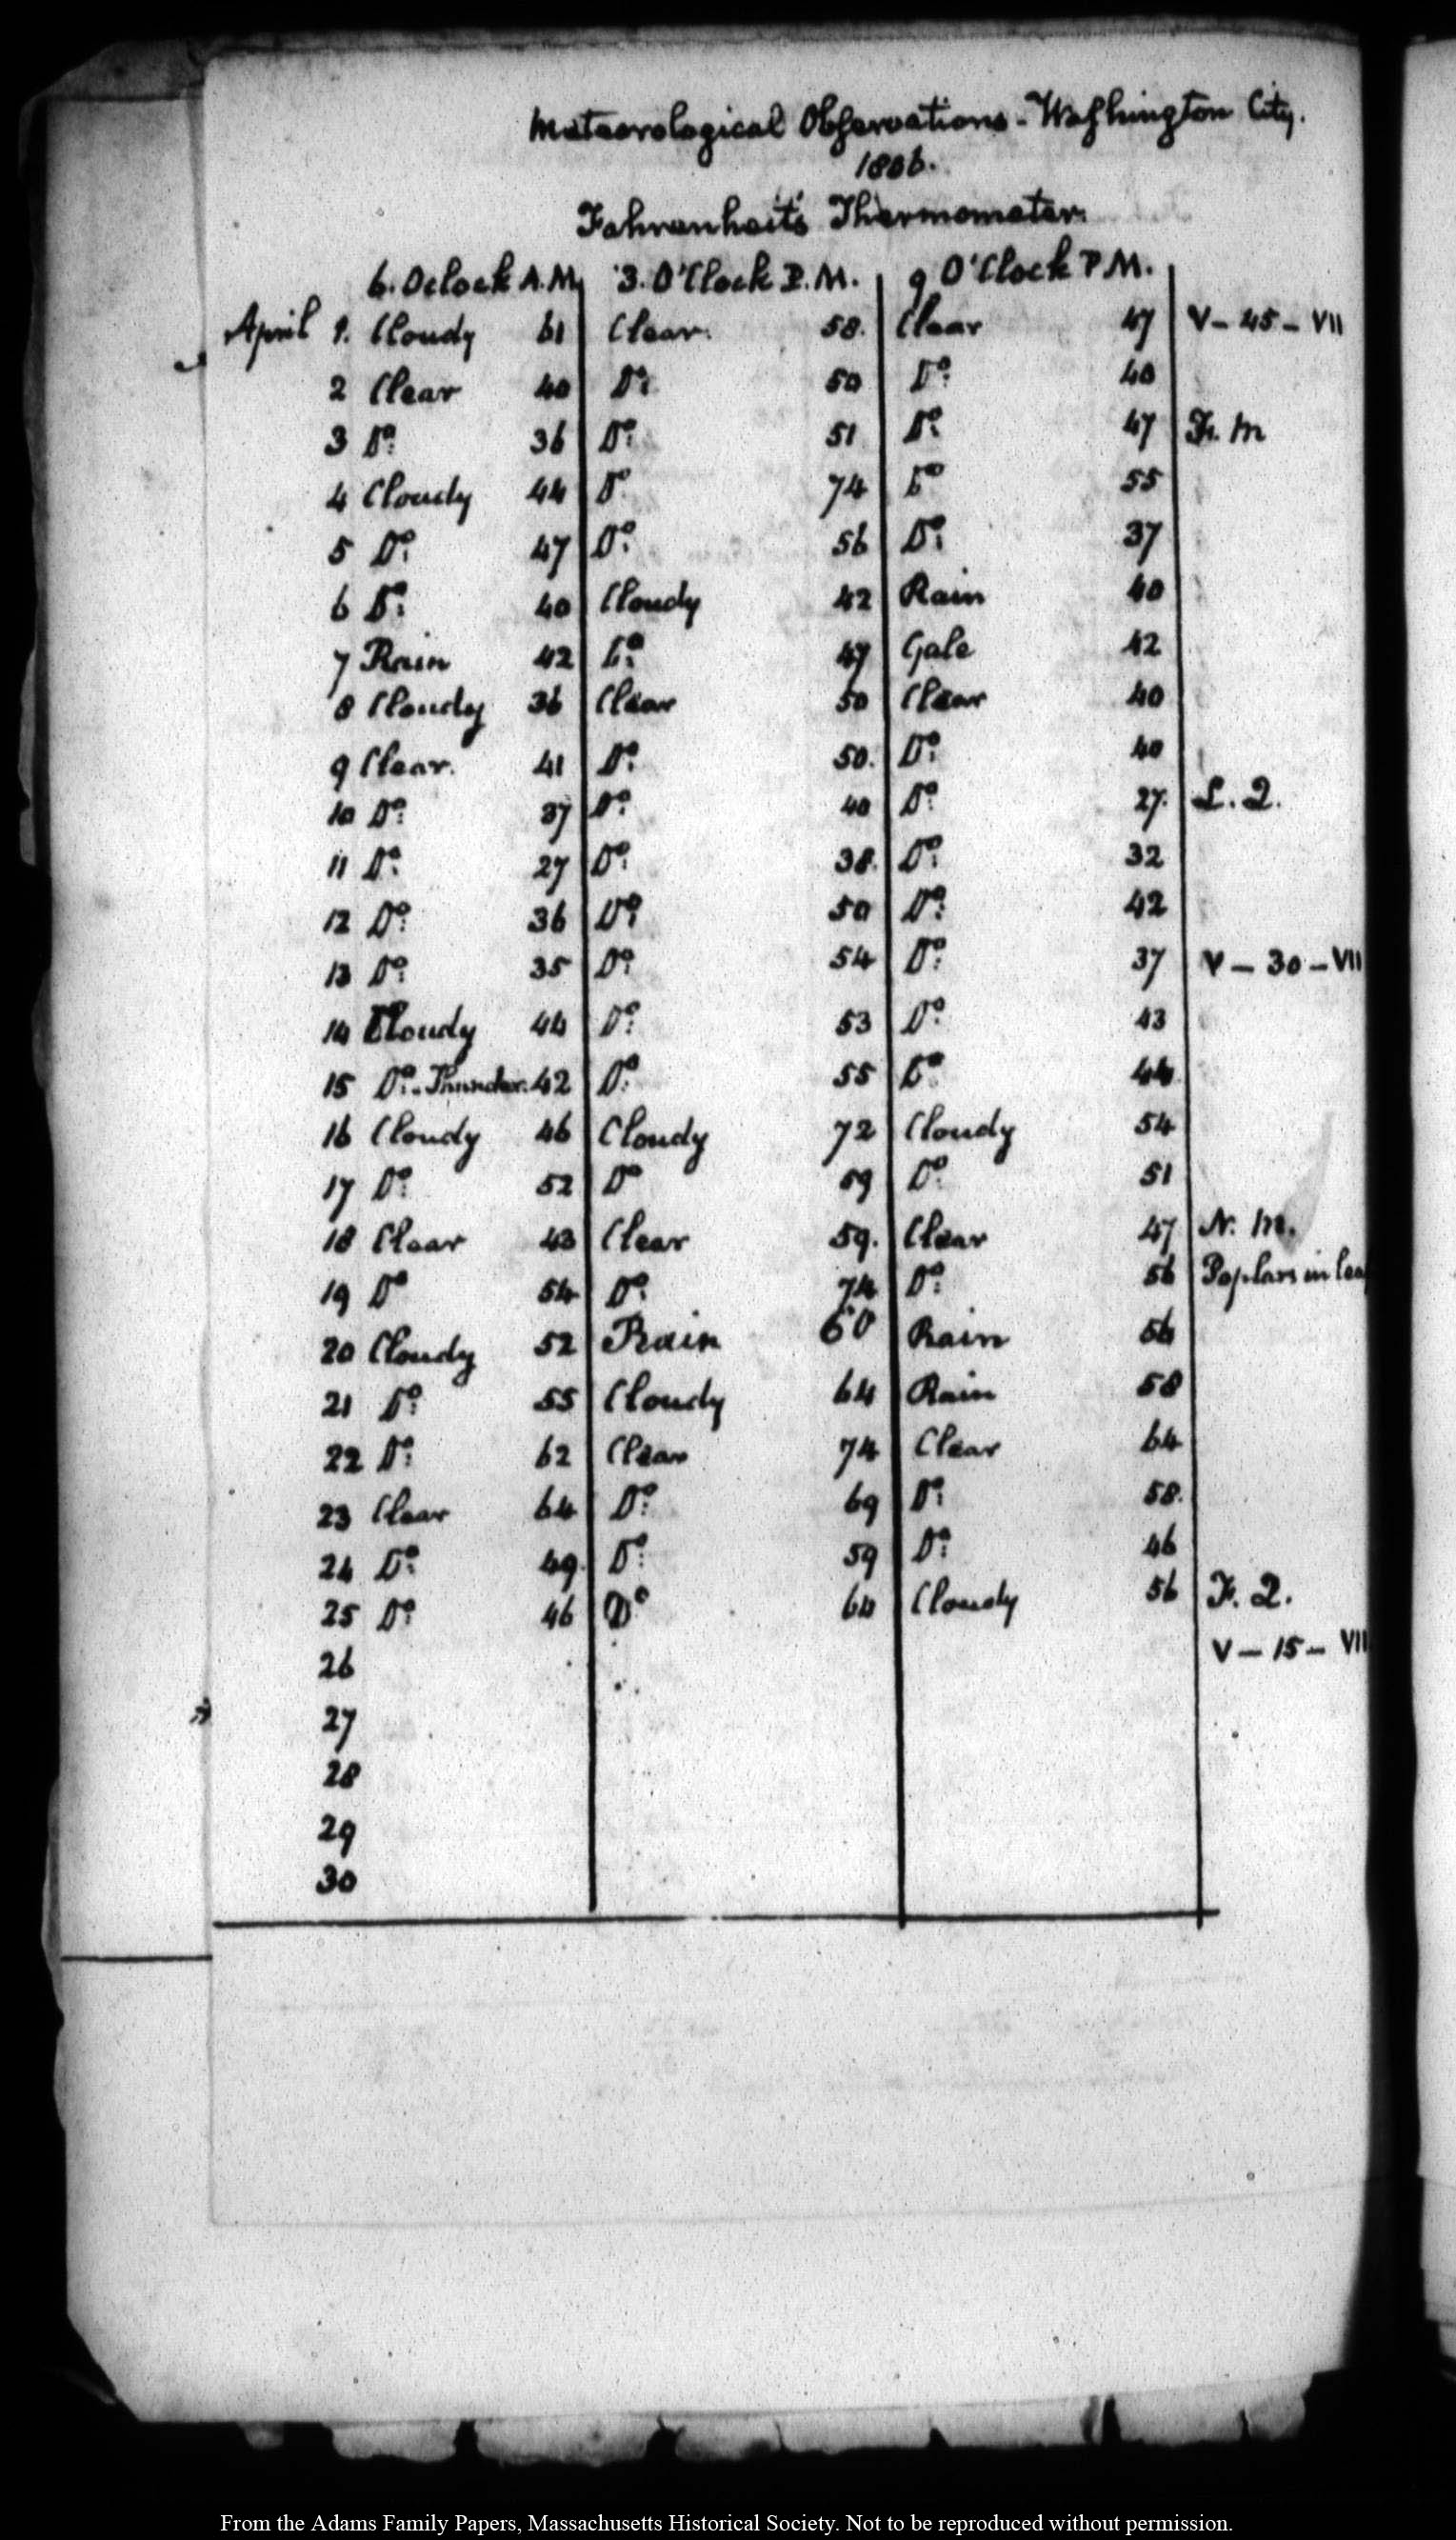 Meteorological Observations - Washington City.
1806.
Fahrenheit's Thermometer.
6. Oclock A.M. 3. O'Clock P.M. 9 O'Clock P.M.
April 1. Cloudy 61 Clear. 58. Clear 47 V - 45 - VII
2 Clear 40 Do. 50 Do. 40
3 Do. 36 Do. 51 Do. 47 F. M
4 Cloudy 44 Do. 74 Do 55
5 Do. 47 Do. 56 Do. 37
6 Do. 40 Cloudy 42 Rain 40
7 Rain 42 Do. 47 Gale 42
8 Cloudy 36 Clear 50 Clear 40
9 Clear. 41 Do. 50. Do. 40
10 Do. 37 Do. 40 Do. 27. L. Q.
11 Do. 27 Do. 38. Do. 32
12 Do. 36 Do. 50 Do. 42
13 Do. 35 Do. 54 Do. 37 V - 30 - VII
14 Cloudy 44 Do. 53 Do. 43
15 Do. - Thunder. 42 Do. 55 Do. 44
16 Cloudy 46 Cloudy 72 Cloudy 54
17 Do. 52 Do 59 Do. 51
18 Clear 43 Clear 59. Clear 47 N. M.
19 Do 54 Do. 74 Do. 56 Poplars in lea
20 Cloudy 52 Rain 60 Rain 56
21 Do. 55 Cloudy 64 Rain 58
22 Do. 62 Clear 74 Clear 64
23 Clear 64 Do. 69 Do. 58.
24 Do. 49. Do. 59 Do. 46
25 Do. 46 Do 64 Cloudy 56 F. Q.
26 V - 15 - VII
27
28
29
30
From the Adams Family Papers, Massachusetts Historical Society. Not to be reproduced without permission.